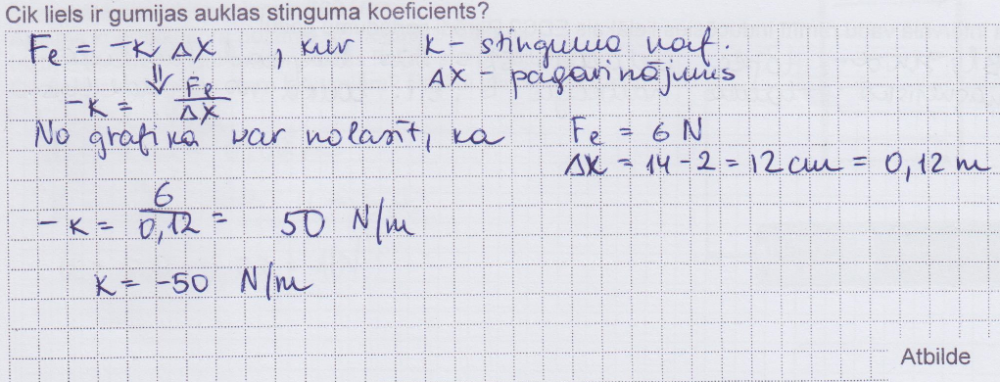 Cik liels ir gumijas auklas stinguma koeficients?
Fe = -k Δx , kur k - stinguma koef.
⇓ Δx - pagarinājums
-k = Fe/Δx
No grafika var nolasīt, ka Fe = 6 N
Δx = 14 - 2 = 12 cm = 0,12 m
-k = 6/0,12 = 50 N/m
k = -50 N/m
Atbilde